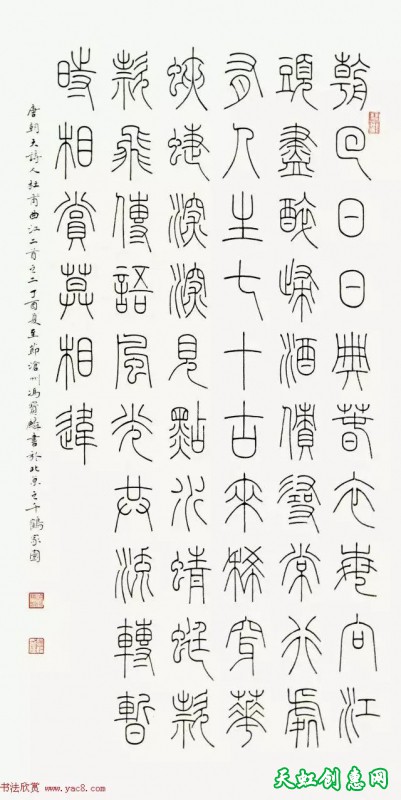 朝回日日典春衣每向江
頭盡醉歸酒債尋常行處
有人生七十古來稀穿華
蛺蜨深深見點水蜻蜓款
款飛傳語風光共流轉暫
時相賞莫相違
唐朝大詩人杜甫曲江二首之二丁酉夏至節滄州馮寶麟書於北京之千鶴家園
书法欣赏 www.yac8.com
天虹创意网